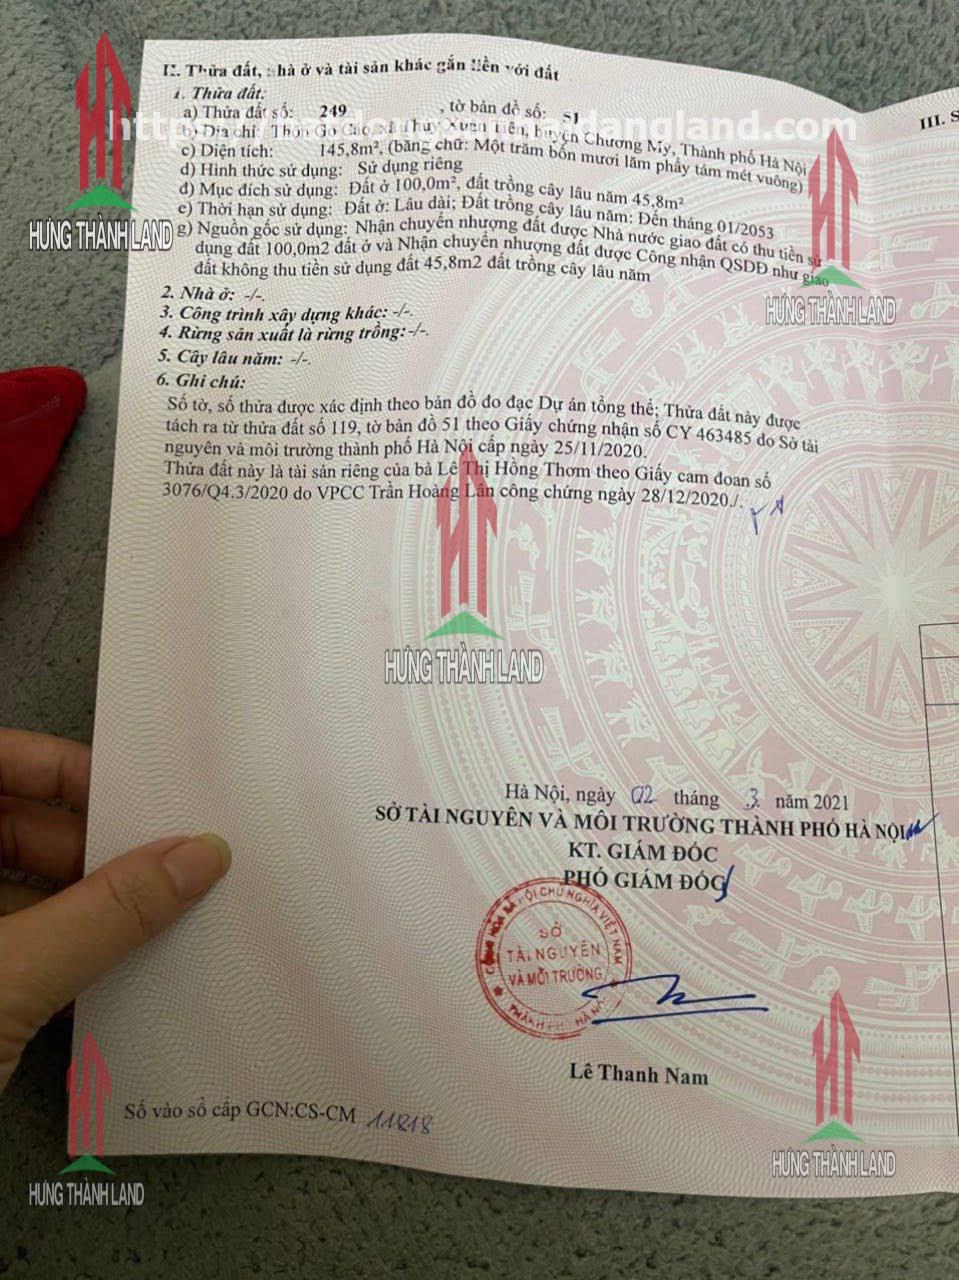 II. Thửa đất, nhà ở và tài sản khác gắn liền với đất
1. Thửa đất:
a) Thửa đất số: 249 , tờ bản đồ số: 51
b) Địa chỉ: Thôn Gò Cáo, xã Thuỷ Xuân Tiên, huyện Chương Mỹ, Thành phố Hà Nội
c) Diện tích: 145,8m², (bằng chữ: Một trăm bốn mươi lăm phẩy tám mét vuông)
d) Hình thức sử dụng: Sử dụng riêng
đ) Mục đích sử dụng: Đất ở 100,0m², đất trồng cây lâu năm 45,8m²
e) Thời hạn sử dụng: Đất ở: Lâu dài; Đất trồng cây lâu năm: Đến tháng 01/2053
g) Nguồn gốc sử dụng: Nhận chuyển nhượng đất được Nhà nước giao đất có thu tiền sử
dụng đất 100,0m2 đất ở và Nhận chuyển nhượng đất được Công nhận QSDĐ như giao
đất không thu tiền sử dụng đất 45,8m2 đất trồng cây lâu năm
2. Nhà ở: -/-.
3. Công trình xây dựng khác: -/-.
4. Rừng sản xuất là rừng trồng: -/-.
5. Cây lâu năm: -/-.
6. Ghi chú:
Số tờ, số thửa được xác định theo bản đồ đo đạc Dự án tổng thể; Thửa đất này được
tách ra từ thửa đất số 119, tờ bản đồ 51 theo Giấy chứng nhận số CY 463485 do Sở tài
nguyên và môi trường thành phố Hà Nội cấp ngày 25/11/2020.
Thửa đất này là tài sản riêng của bà Lê Thị Hồng Thơm theo Giấy cam đoan số
3076/Q4.3/2020 do VPCC Trần Hoàng Lân công chứng ngày 28/12/2020./.
III. S
Hà Nội, ngày 02 tháng 3 năm 2021
SỞ TÀI NGUYÊN VÀ MÔI TRƯỜNG THÀNH PHỐ HÀ NỘI
KT. GIÁM ĐỐC
PHÓ GIÁM ĐỐC
CỘNG HÒA XÃ HỘI CHỦ NGHĨA VIỆT NAM
SỞ
TÀI NGUYÊN
VÀ MÔI TRƯỜNG
THÀNH PHỐ HÀ NỘI
Lê Thanh Nam
Số vào sổ cấp GCN:CS-CM 11818
HƯNG THÀNH LAND
HƯNG THÀNH LAND
HƯNG THÀNH LAND
HƯNG THÀNH LAND
HƯNG THÀNH LAND